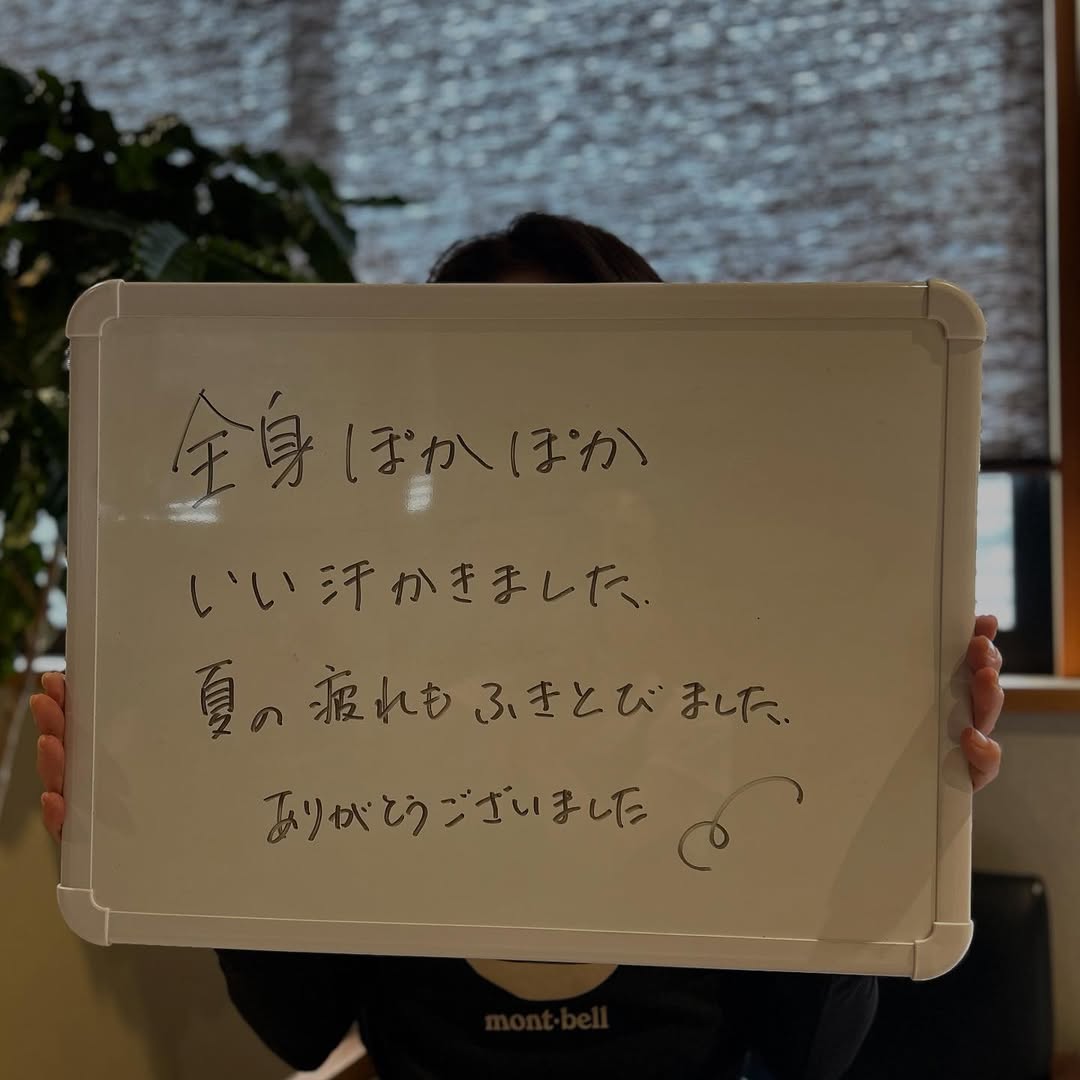 全身ぽかぽか
いい汗かきました.
夏の疲れもふきとびました.
ありがとうございました
mont·bell